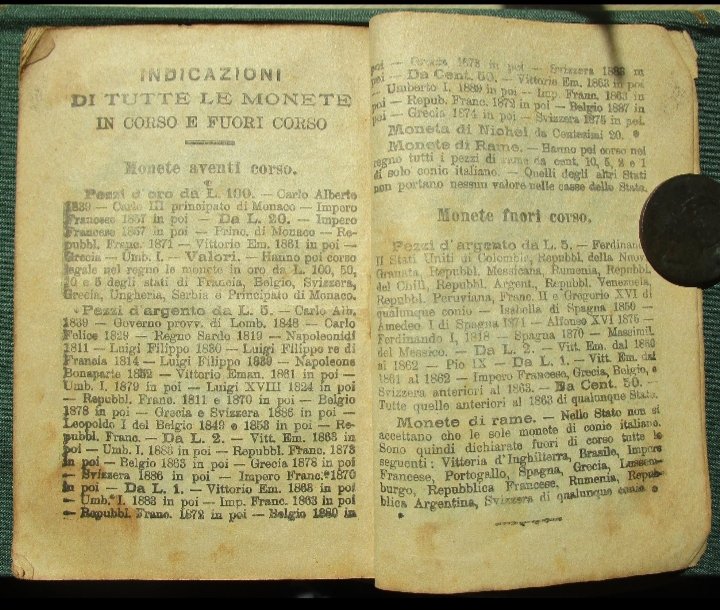 INDICAZIONI
DI TUTTE LE MONETE
IN CORSO E FUORI CORSO
Monete aventi corso.
Pezzi d'oro da L. 100. — Carlo Alberto
1839 — Carlo III principato di Monaco — Impero
Francese 1857 in poi — Da L. 20. — Impero
Francese 1857 in poi — Princ. di Monaco — Re-
pubbl. Franc. 1871 — Vittorio Em. 1861 in poi —
Grecia — Umb. I. — Valori. — Hanno poi corso
legale nel regno le monete in oro da L. 100, 50,
10 e 5 degli stati di Francia, Belgio, Svizzera,
Grecia, Ungheria, Serbia e Principato di Monaco.
Pezzi d'argento da L. 5. — Carlo Alb.
1839 — Governo provv. di Lomb. 1848 — Carlo
Felice 1829 — Regno Sardo 1819 — Napoleonidi
1811 — Luigi Filippo 1830 — Luigi Filippo re di
Francia 1814 — Luigi Filippo 1839 — Napoleone
Bonaparte 1852 — Vittorio Eman. 1861 in poi —
Umb. I. 1879 in poi — Luigi XVIII 1824 in poi
— Repubbl. Franc. 1811 e 1870 in poi — Belgio
1878 in poi — Grecia e Svizzera 1886 in poi —
Leopoldo I del Belgio 1849 e 1853 in poi — Re-
pubbl. Franc. — Da L. 2. — Vitt. Em. 1863 in
poi — Umb. I. 1883 in poi — Repubbl. Franc. 1873
in poi — Belgio 1863 in poi — Grecia 1878 in poi
— Svizzera 1886 in poi — Impero Franc. 1870
in poi — Da L. 1. — Vittorio Em. 1863 in poi
— Umb. I. 1883 in poi — Imp. Franc. 1863 in poi
— Repubbl. Franc. 1872 in poi — Belgio 1880 in
poi — Grecia 1873 in poi — Svizzera 1883 in
poi — Da Cent. 50. — Vittorio Em. 1863 in poi
— Umberto I. 1889 in poi — Imp. Franc. 1863 in
poi — Repub. Franc. 1872 in poi — Belgio 1887 in
poi — Grecia 1874 in poi — Svizzera 1875 in poi.
Moneta di Nichel da Centesimi 20.
Monete di Rame. — Hanno poi corso nel
regno tutti i pezzi di rame da cent. 10, 5, 2 e 1
di solo conio italiano. — Quelli degli altri Stati
non portano nessun valore nelle casse dello Stato.
Monete fuori corso.
Pezzi d'argento da L. 5. — Ferdinando
II Stati Uniti di Colombia, Repubbl. della Nuova
Granata, Repubbl. Messicana, Rumenia, Repubbl.
del Chilì, Repubbl. Argent., Repubbl. Venezuela,
Repubbl. Peruviana, Franc. II e Gregorio XVI di
qualunque conio — Isabella di Spagna 1850 —
Amedeo I di Spagna 1871 — Alfonso XVI 1875 —
Ferdinando I, 1818 — Spagna 1870 — Massimil.
del Messico. — Da L. 2. — Vitt. Em. dal 1850
al 1862 — Pio IX — Da L. 1. — Vitt. Em. dal
1861 al 1862 — Impero Francese, Grecia, Belgio, e
Svizzera anteriori al 1863. — Da Cent. 50. —
Tutte quelle anteriori al 1863 di qualunque Stato.
Monete di rame. — Nello Stato non si
accettano che le sole monete di conio italiano.
Sono quindi dichiarate fuori di corso tutte le
seguenti: Vittoria d'Inghilterra, Brasile, Impero
Francese, Portogallo, Spagna, Grecia, Lussem-
burgo, Repubblica Francese, Rumenia, Repub-
blica Argentina, Svizzera di qualunque conio